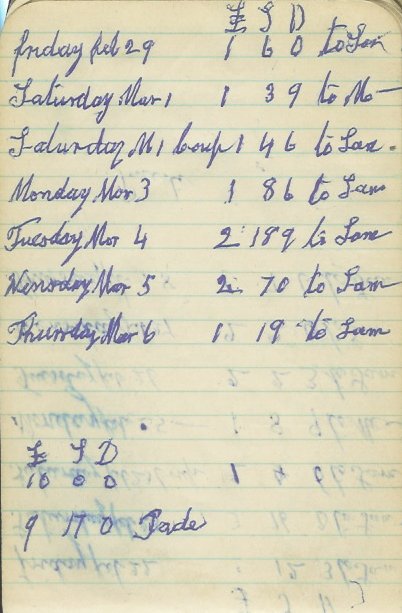 £ S D
Friday Feb 29 1 6 0 to Sam
Saturday Mar 1 1 3 9 to Mo—
Saturday M1 1 4 6 to Sam.
Monday Mar 3 1 8 6 to Sam
Tuesday Mar 4 2 18 9 to Sam
Wensday Mar 5 2 7 0 to Sam
Thursday Mar 6 1 1 9 to Sam
£ S D
10 0 0
9 17 0